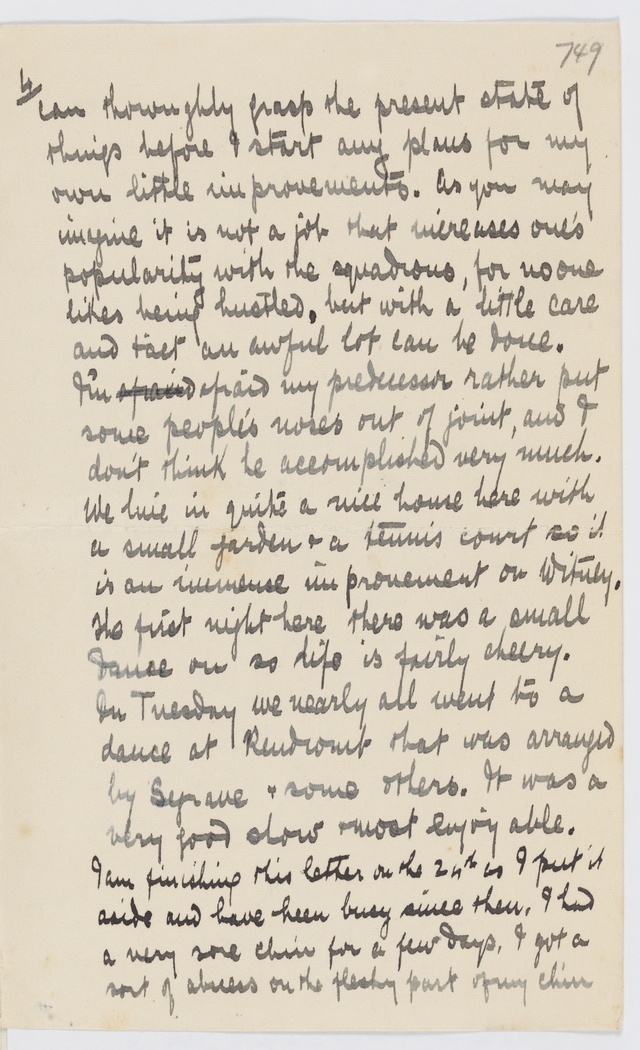 749
4/
can thoroughly grasp the present state of
things before I start any plans for my
own little improvements. As you may
imagine it is not a job that increases one's
popularity with the squadrons, for no one
likes being hustled, but with a little care
and tact an awful lot can be done.
I'm afraid afraid my predecessor rather put
some people's noses out of joint, and I
don't think he accomplished very much.
We live in quite a nice house here with
a small garden & a tennis court so it
is an immense improvement on Witney.
The first night here there was a small
dance on so life is fairly cheery.
On Tuesday we nearly all went to a
dance at that was arranged
by Segrave & some others. It was a
very good show & most enjoyable.
I am finishing this letter on the as I put it
aside and have been busy since then. I had
a very sore chin for a few days. I got a
sort of abscess on the fleshy part of my chin